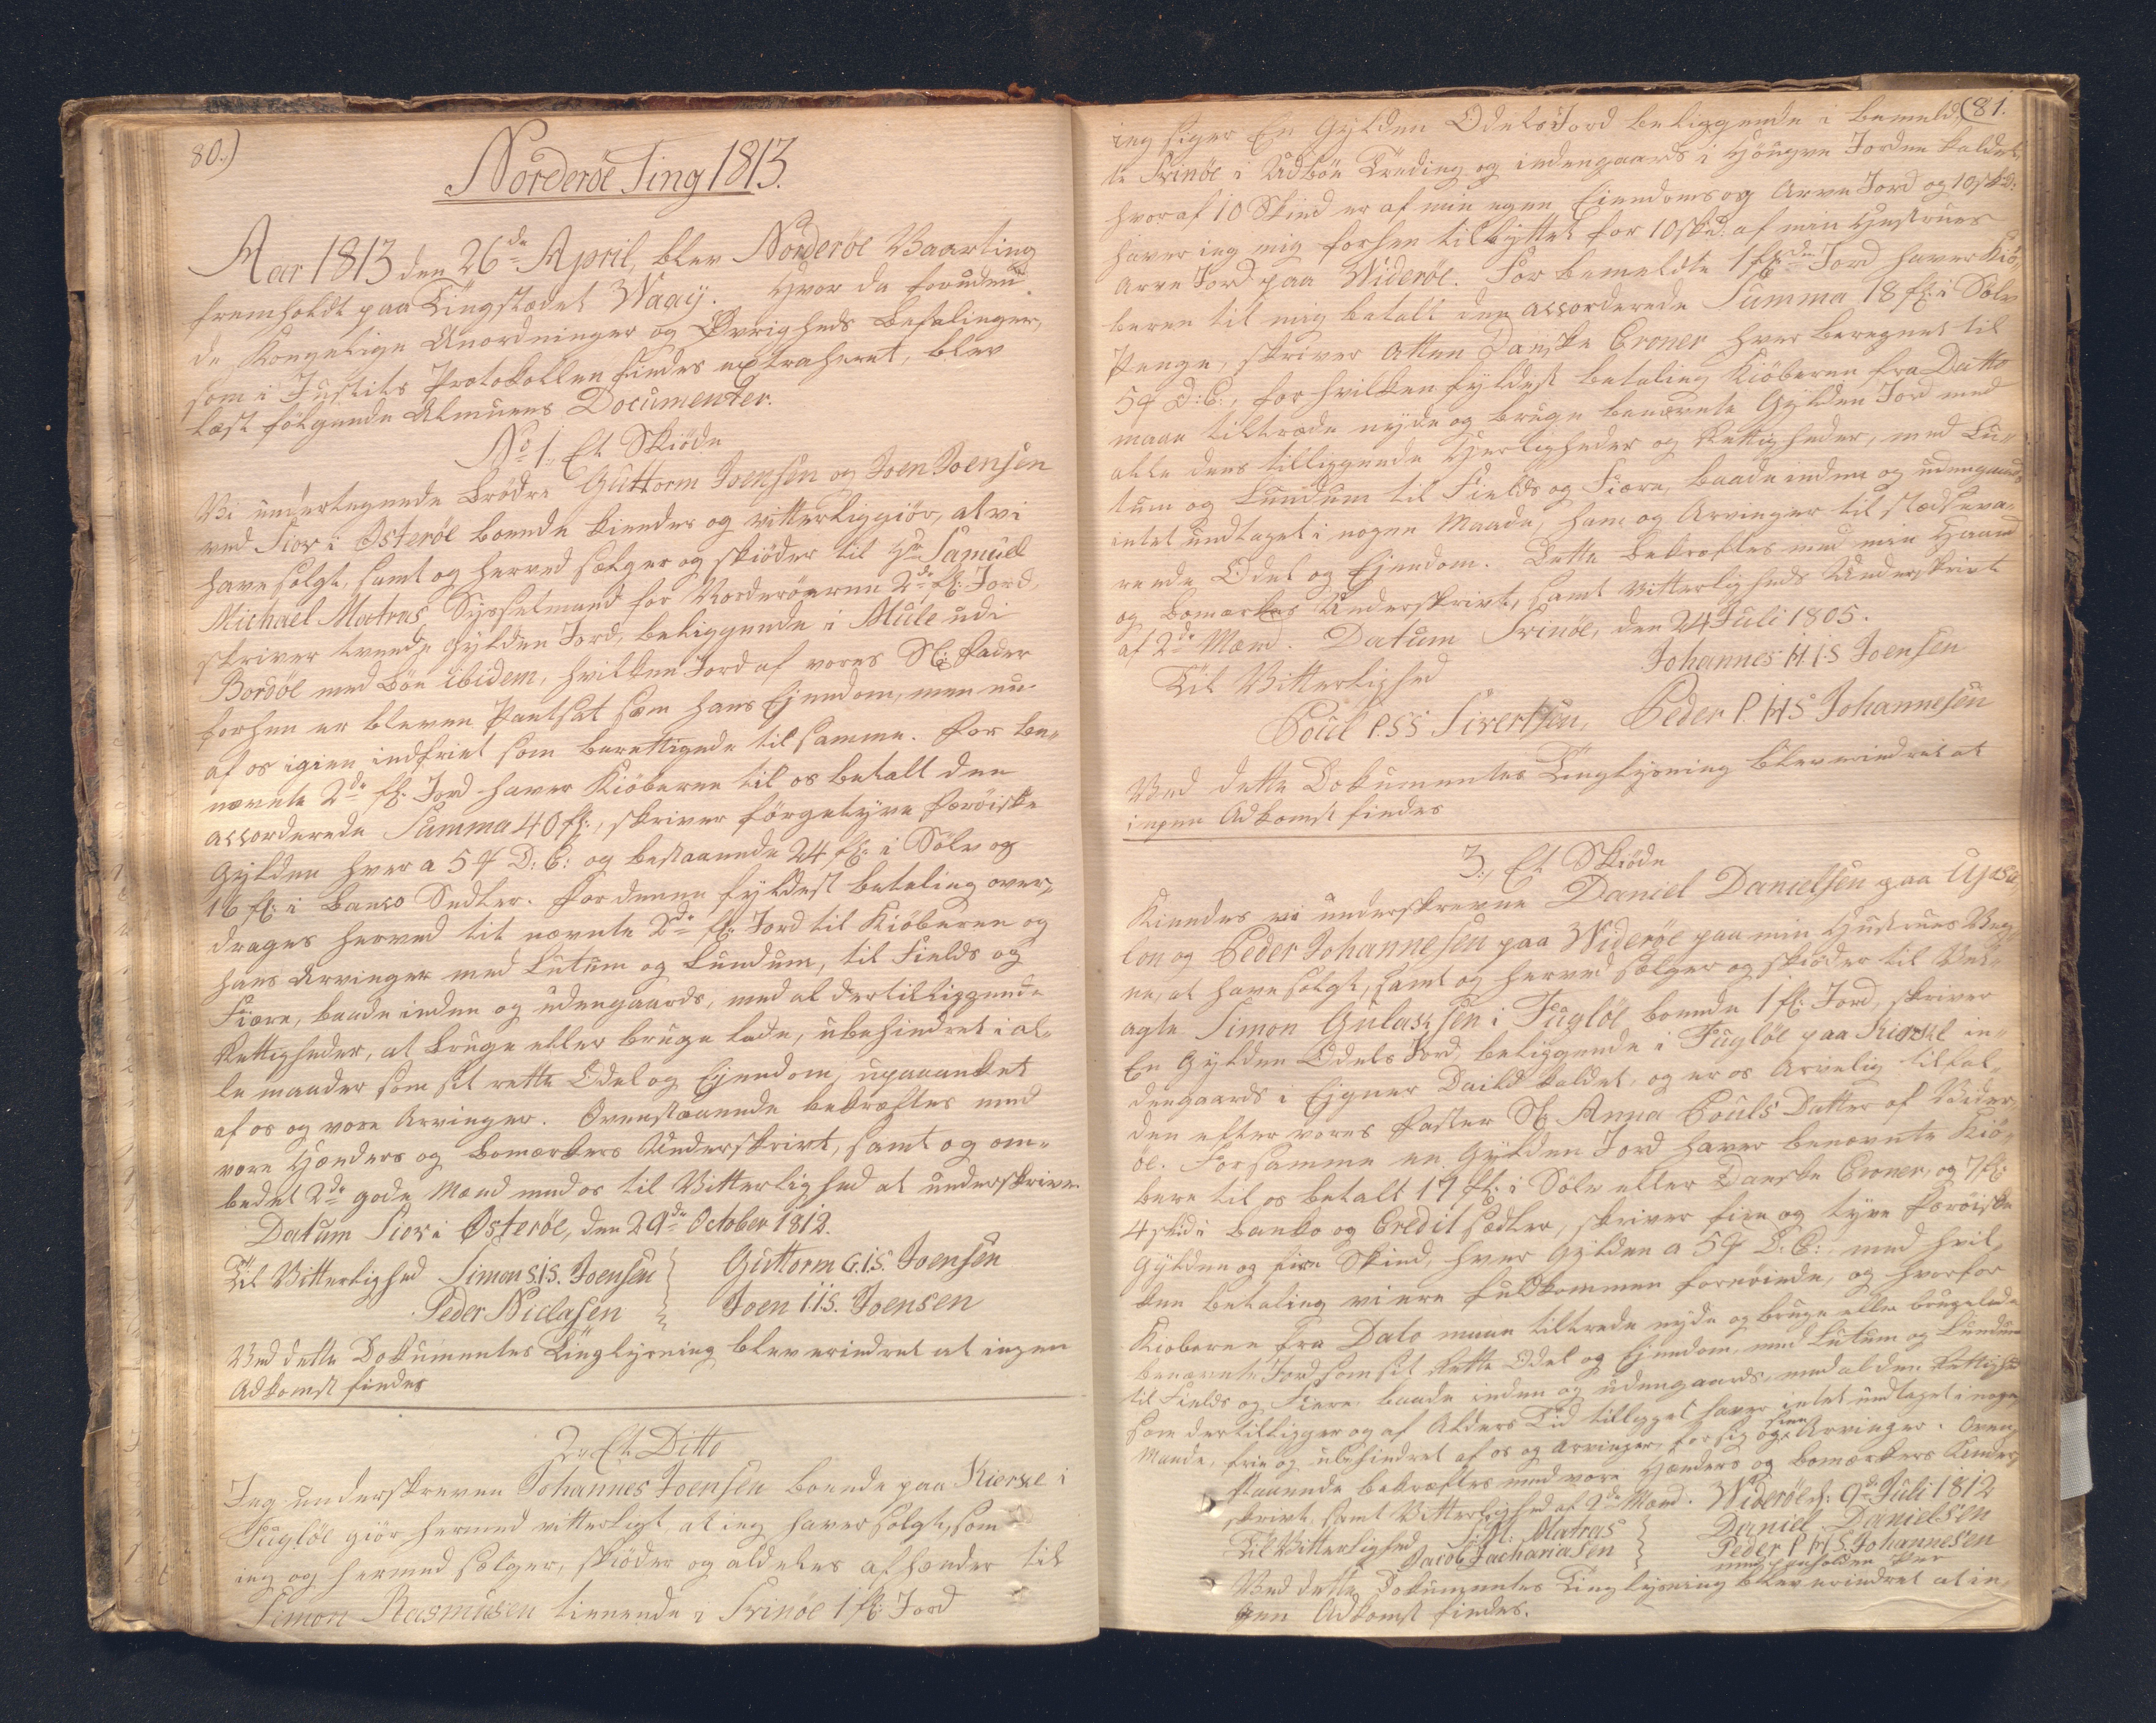 80.)
Norderöe Ting 1813.
Aar 1813 den 26de April, blev Norderöe Vaarting
fremholdt paa Tingstædet Waaÿ. Hvor da foruden
de Kongelige Anordninger og Øvrigheds Befalinger,
som i Justits Protokollen findes extraheret, blev
læst fölgende Almuens Documenter.
No 1. Et Skiöde
Vi undertegnede Brödre Guttorm Joensen og Joen Joensen
ved Siov i Østeröe boende kiendes og vitterliggiör, at vi
have solgt, samt og herved sælger og skiöder til Hr Samuel
Michael Matras Sysselmand for Norderöerne 2de fl: Jord,
skriver tvende Gylden Jord, beliggende i Mule udi
Bordöe med Böe ibidem, hvilken Jord af vores Sl: Fader
forhen er bleven Pantsat som hans Ejendom, men nu
af os igien indfriet som berettigede til samme. For be-
nevnte 2de fl: Jord haver Kiöberen til os betalt den
accorderede Summa 40 fl:, skriver förgetyve Færöiske
Gylden hver a 54 D: C: og bestaaende 24 fl: i Sölv og
16 fl: i Banco Sedler. For denne fyldest betaling over-
drages herved til nævnte 2de fl: Jord til Kiöberen og
hans Arvinger med Lutum og Lundum, til Fields og
Fiære, baade inden og udengaards, med al dertilliggende
Rettigheder, at bruge eller bruge lade, ubehindret i al-
le maader som sit rette Odel og Ejendom, upaaanket
af os og vore Arvinger. Ovenstaaende bekræftes med
vore Hænders og Bomærkers Underskrivt, samt og om-
bedet 2de gode Mænd med os til Vitterlighed at underskrive
Datum Siov i Østeröe, den 29de October 1812.
Til Vitterlighed Simon S.I.S. Joensen Guttorm G.I.S. Joensen
Peder Niclasen Joen I.I.S. Joensen
Ved dette Dokumentes Tinglysning blev erindret at ingen
Adkomst findes
2. Et Ditto
Jeg underskreven Johannes Joensen boende paa Kierke i
Fuglöe giör hermed vitterligt, at jeg haver solgt, som
jeg og hermed sælger, skiöder og aldeles afhænder til
Simon Rasmusen tienende i Svinöe 1 fl: Jord
(81.
jeg siger En Gylden Odels Jord beliggende i bemeld-
te Svinöe i Udböe Treding og indengaards i Höugne Jorden kaldet,
hvoraf 10 Skind er af min egen Eiendoms og Arve Jord og 10 skd:
haver jeg mig forhen tilbyttet for 10 skd. af min Hustrues
Arve Jord paa Wideröe. For bemeldte 1 fl: Jord haver Kiö-
beren til mig betalt den accorderede Summa 18 fl: i Sölv
Penge, skriver atten Danske Croner hver beregnet til
54 D: C:, for hvilken fyldest betaling Kiöberen fra Datto
maae tiltræde nyde og bruge benævnte Gylden Jord med
alle dens tilliggende Herligheder og Rettigheder, med Lu-
tum og Lundum til Fields og Fiære, baade inden og udengaards
intet undtaget i nogen Maade, ham og Arvinger til stedseva-
rende Odel og Ejendom. Dette bekræftes med min Haand
og Bomærkes Underskrivt, samt Vitterligheds Underskrivt
af 2de Mænd. Datum Svinöe, den 24 Juli 1805.
Johannes H.I.S Joensen
Til Vitterlighed
Poul P.S.S Sivertsen, Peder P. H S Johannesen
Ved dette Dokumentes Tinglysning blev erindret at
ingen Adkomst findes
3., Et Skiöde
Kiendes vi underskrevne Daniel Danielsen paa
og Peder Johannesen paa Wideröe paa min Hustrues Veg-
ne, at have solgt, samt og herved sælger og skiöder til Vel-
agte Simon i Fuglöe boende 1 fl: Jord, skriver
En Gylden Odels Jord, beliggende i Fuglöe paa Kierke in-
dengaards i Eigner Deild kaldet, og er os Arvelig tilfal-
den efter vores Faster Sl: Anna Pouls Datter af Wider-
öe. For samme en Gylden Jord haver benævnte Kiö-
bere til os betalt 17 fl: i Sölv eller Danske Croner, og 7 fl:
4 skd: i Banko og Credit Sedler, skriver fire og tyve Færöiske
Gylden og fire Skind, hver Gylden a 54 D: C: med hvil-
ken betaling vi ere fuldkommen fornöiede, og hvorfor
Kioberen fra Dato maae tiltræde nyde og bruge eller brugelade
benævnte Jord som sit Rette Odel og Ejendom, med Lutum og Lundum
til Fields og Fiære, baade inden og udengaards, med al den Rettighed
som dertilligger og af Alders Tid tilligget haver intet undtaget i nogen
Maade, frie og ubehindret af os og Arvinger, for sig og sine Arvinger. Oven-
staaende bekræftes med vore Hænders og Bomærkers Under-
skrivt, samt Vitterlighed af 2de Mænd. Wideröe d: 9de Juli 1812
Til Vitterlighed S: M: Matras Daniel Danielsen
Jacob Zachariasen Peder P H S Johannesen
med paaholden Pen
Ved dette Dokumentes Tinglysning blev erindret at in-
gen Adkomst findes.